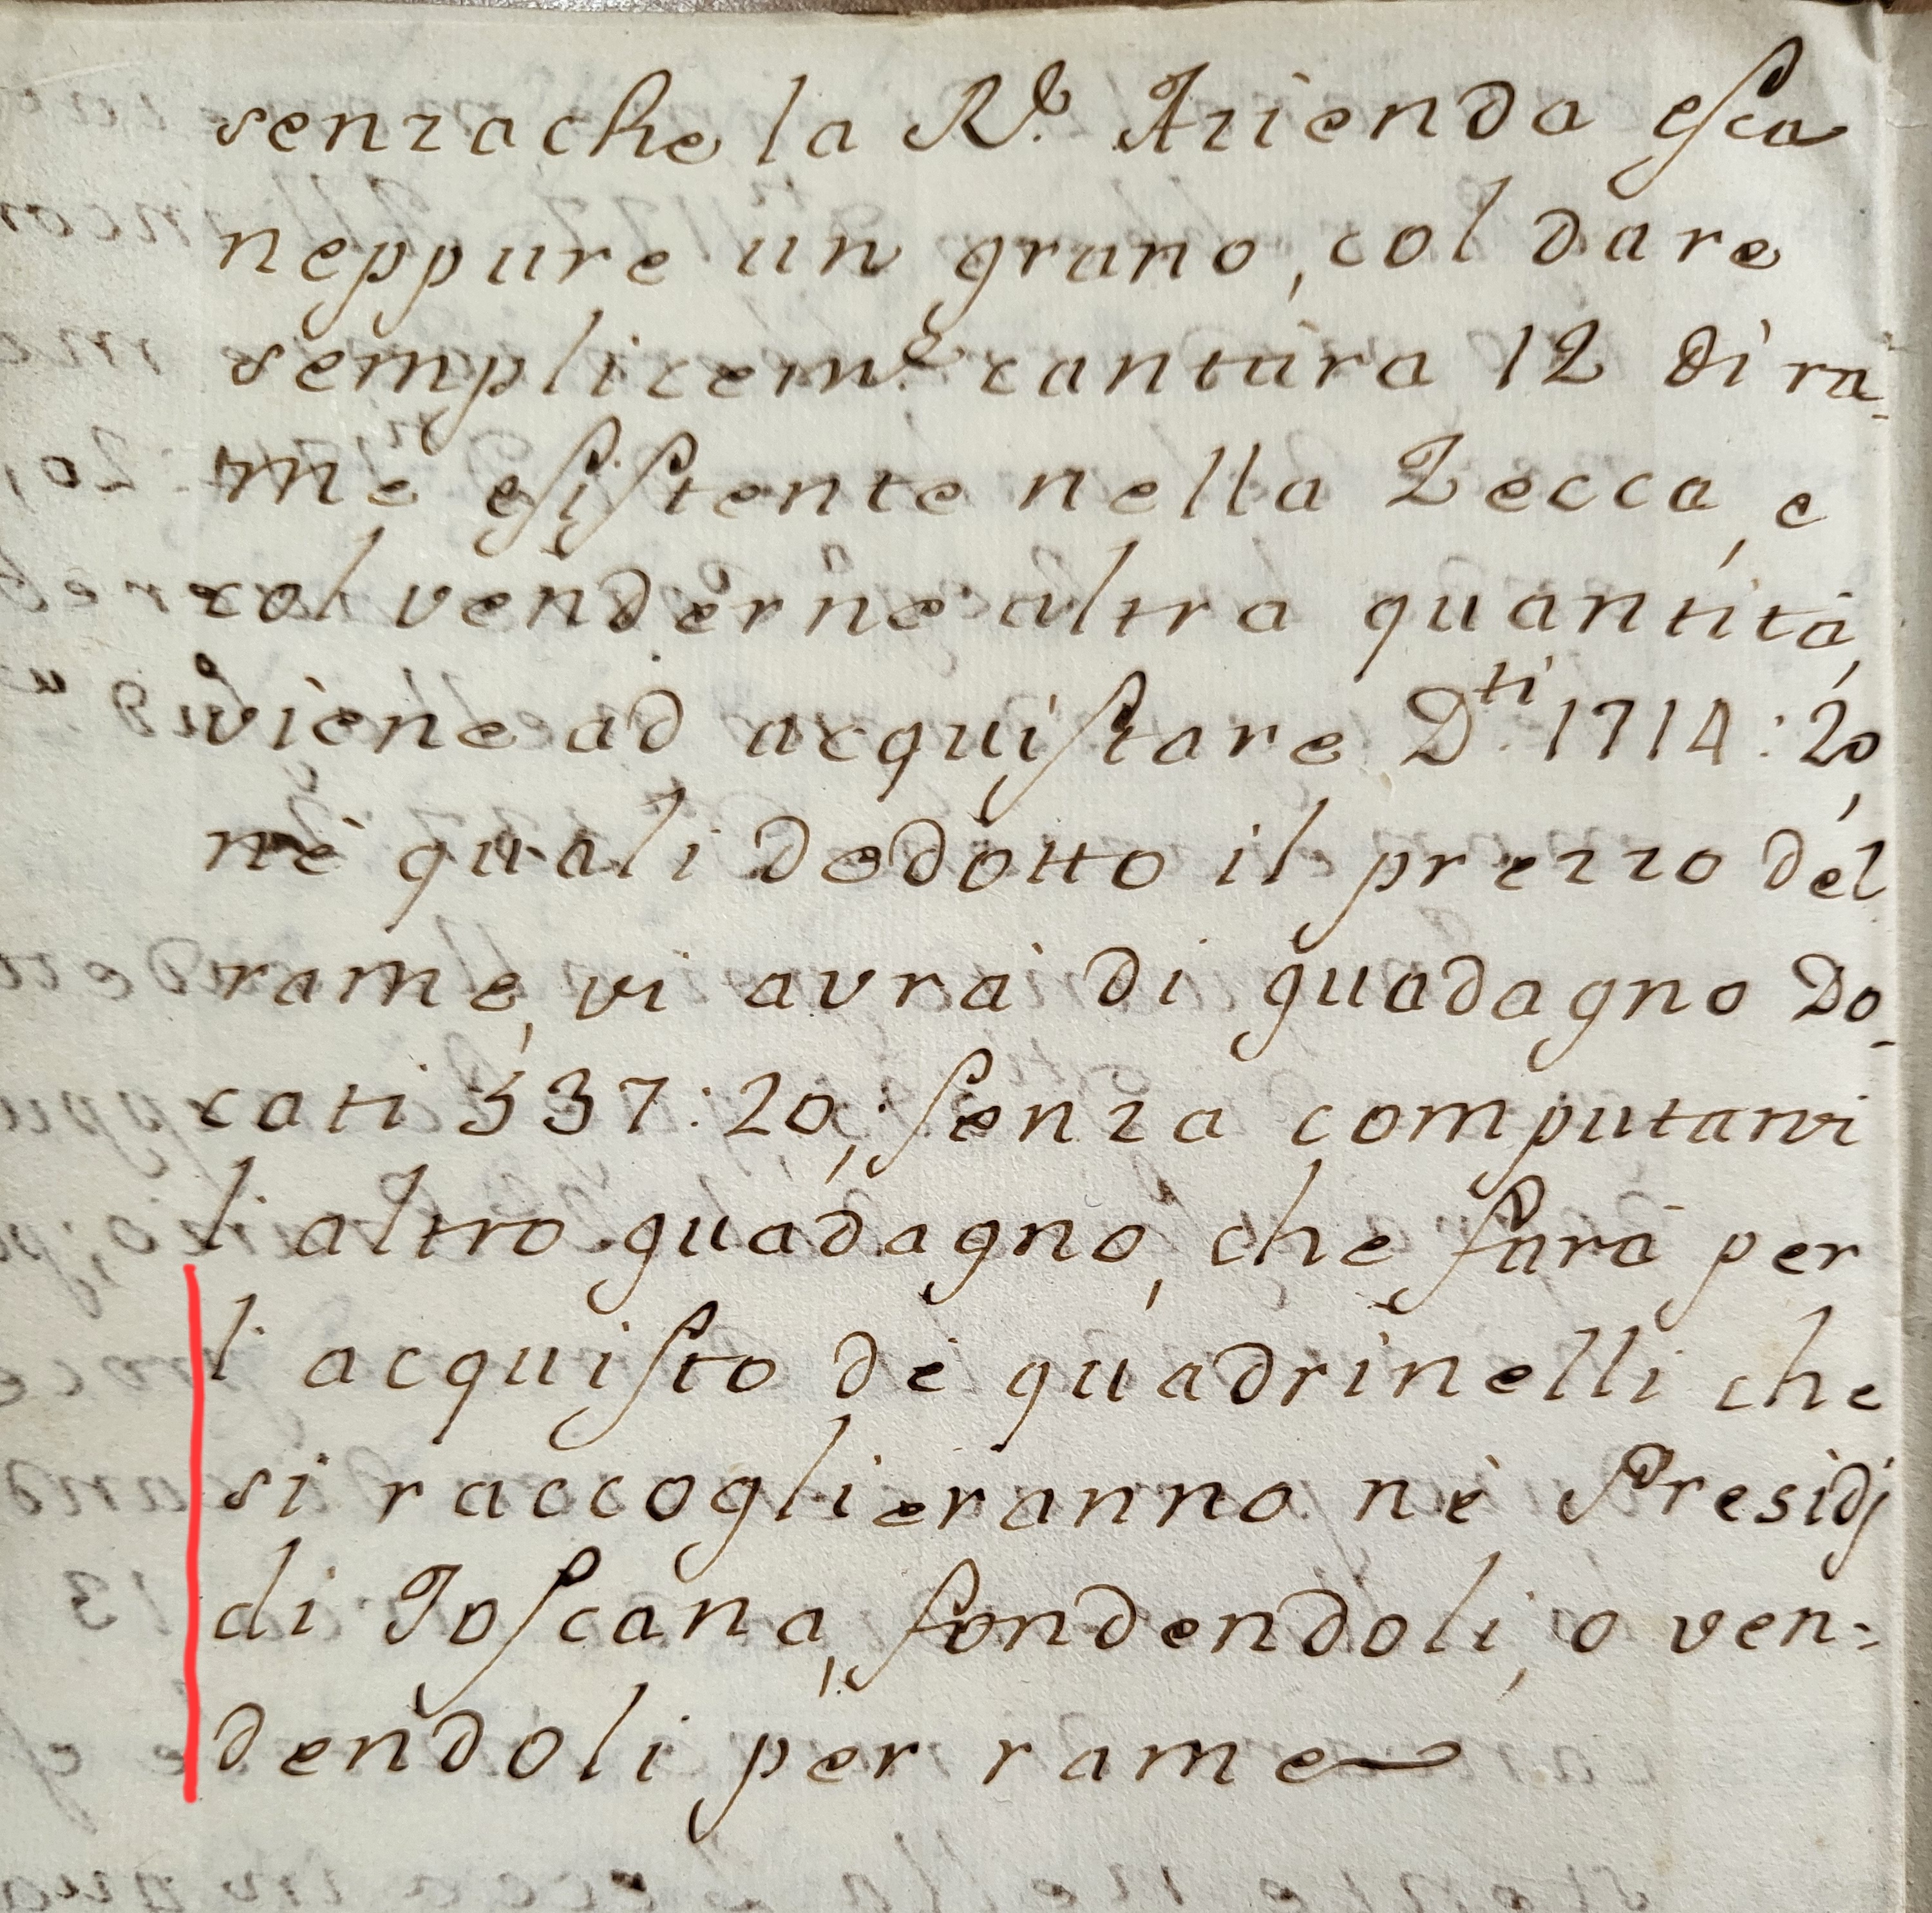 senzache la R.l Azienda esca
neppure un grano, col dare
semplicem.e cantara 12 di ra-
me esistente nella Zecca, e
col venderne altra quantità,
viene ad acquistare D.ti 1714:20,
nè quali dedotto il prezzo del
rame, vi avrà di guadagno Do-
cati 337:20, senza computarvi
l'altro guadagno, che farà per
l'acquisto dè quadrinelli che
si raccoglieranno nè Presidj
di Toscana, fondendoli, o ven-
dendoli per rame